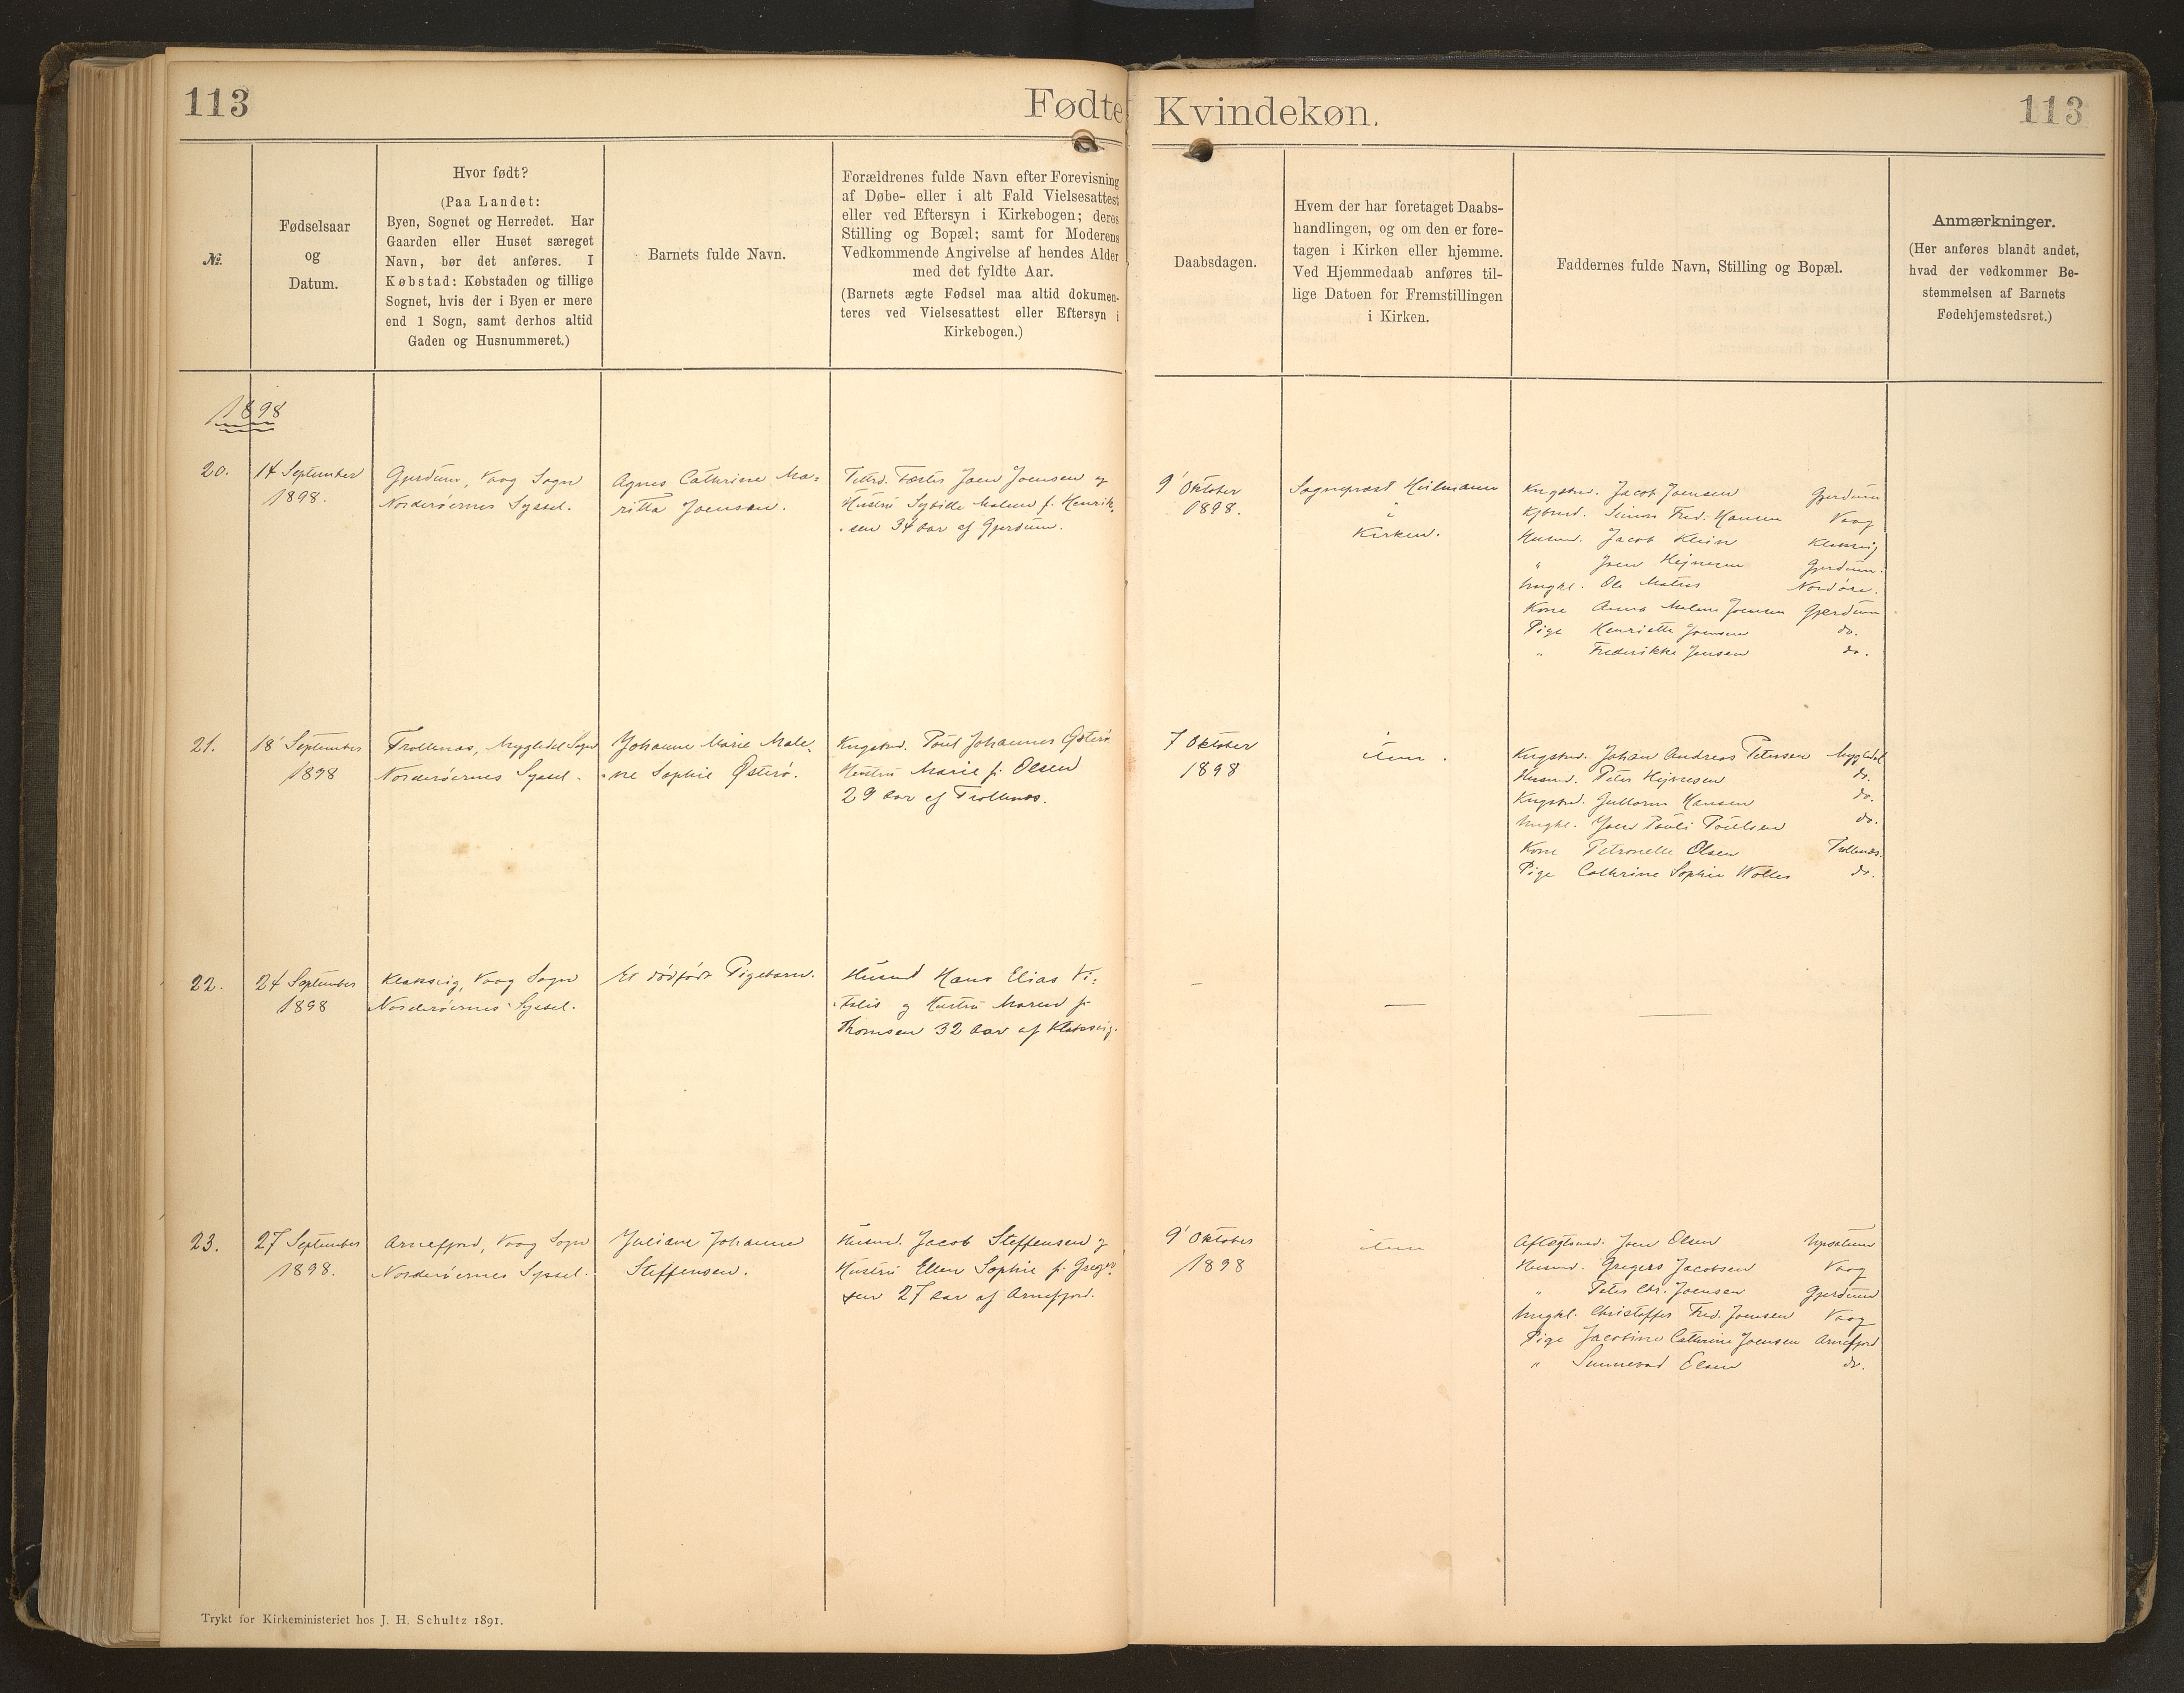 113
Fødte
Kvindekøn.
113
№
Fødselsaar
og
Datum.
Hvor født?
(Paa Landet:
Byen, Sognet og Herredet. Har
Gaarden eller Huset særeget
Navn, bør det anføres. I
Købstad: Købstaden og tillige
Sognet, hvis der i Byen er mere
end 1 Sogn, samt derhos altid
Gaden og Husnummeret.)
Barnets fulde Navn.
Forældrenes fulde Navn efter Forevisning
af Døbe- eller i alt Fald Vielsesattest
eller ved Eftersyn i Kirkebogen; deres
Stilling og Bopæl; samt for Moderens
Vedkommende Angivelse af hendes Alder
med det fyldte Aar.
(Barnets ægte Fødsel maa altid dokumen-
teres ved Vielsesattest eller Eftersyn i
Kirkebogen.)
Daabsdagen.
Hvem der har foretaget Daabs-
handlingen, og om den er fore-
tagen i Kirken eller hjemme.
Ved Hjemmedaab anføres til-
lige Datoen for Fremstillingen
i Kirken.
Faddernes fulde Navn, Stilling og Bopæl.
Anmærkninger.
(Her anføres blandt andet,
hvad der vedkommer Be-
stemmelsen af Barnets
Fødehjemstedsret.)
1898
20.
14 September
1898.
Gjerdum, Vaag Sogn
Norderøernes Syssel.
Agnes Cathrine Ma-
ritta Joensen.
Fæster Joen Joensen og
Hustru Sybille Malene f. Henrik-
sen 34 Aar af Gjerdum.
9' Oktober
1898.
Sogneprast Heilmann
i
Kirken.
Kngsbnd. Jacob Joensen Gjerdum
Kjbmd. Simon Fred. Hansen Vaag
Husmd. Jacob Klein Klaksvig
" Joen Hejnesen Gjerdum.
Ungkl. Ole Matras Nordøre.
Kone Anna Malene Joensen Gjerdum
Pige Henriette Joensen do.
" Frederikke Jensen do.
21.
18' September
1898
Trollenæs, Mygledal Sogn
Norderøernes Syssel.
Johanne Marie Male-
ne Sophie Østerø.
Kngsbnd. Poul Johannes Østerø
Hustru Marie f. Olsen
29 Aar af Trollenæs.
7 Oktober
1898
item.
Kngsbnd. Johan Andreas Petersen Mygledal
Husmd. Peter Hejnesen do.
Kngsbnd. Guttorm Hansen do.
Ungkl. Joen Pauli Poulsen do.
Kone Petronelle Olsen Trollenæs.
Pige Cathrine Sophie Wolles do.
22.
24 September
1898
Klaksvig, Vaag Sogn
Norderøernes Syssel.
Et dødfødt Pigebarn.
Husmd Hans Elias Vi-
talis og Hustru Maren f.
Thomsen 32 Aar af Klaksvig.
23.
27 September
1898.
Arnefjord, Vaag Sogn
Norderøernes Syssel.
Juliane Johanne
Steffensen.
Husmd. Jacob Steffensen og
Hustru Ellen Sophie f. Greger-
sen 27 Aar af Arnefjord.
9' Oktober
1898
item
Aftægtsmd. Joen Olsen
Husmd. Gregers Jacobsen Vaag
" Peter Chr. Joensen Gjerdum
Ungkl. Christoffer Fred. Joensen Vaag
Pige Jacobine Cathrine Joensen Arnefjord
" Sunnevad Olsen do.
Trykt for Kirkeministeriet hos J. H. Schultz 1891.